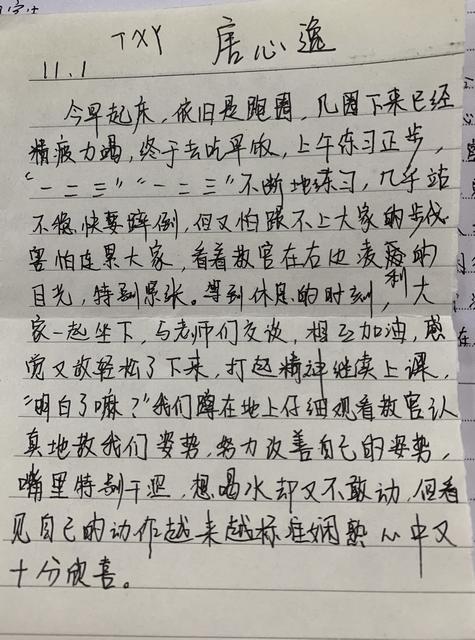 TXY 唐心逸
11.1
今早起床，依旧是跑圈，几圈下来已经
精疲力竭，终于去吃早饭，上午练习正步，
“一二三”“一二三”不断地练习，几乎站
不稳，快要摔倒，但又怕跟不上大家的步伐
害怕连累大家，看着教官在右边凌厉的
目光，特别紧张。等到休息的时刻，大
家一起坐下，与老师们交谈，相互加油，感
觉又放轻松了下来，打起精神继续上课，
“明白了嘛？”我们蹲在地上仔细观看教官认
真地教我们姿势，努力改善自己的姿势，
嘴里特别干涩，想喝水却又不敢动，但看
见自己的动作越来越标准娴熟心中又
十分欣喜。